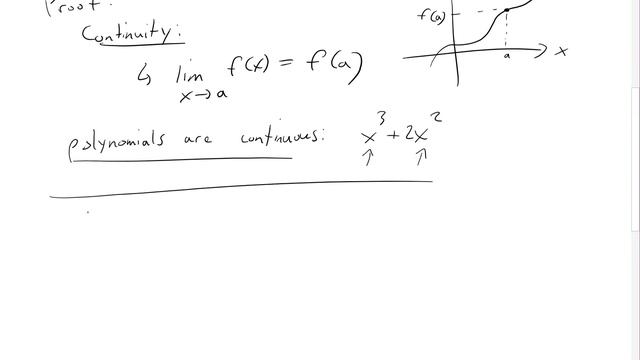 Proof:
Continuity:
f(a)
a
x
↳ lim f(x) = f(a)
x→a
polynomials are continuous: x³ + 2x²
↑ ↑